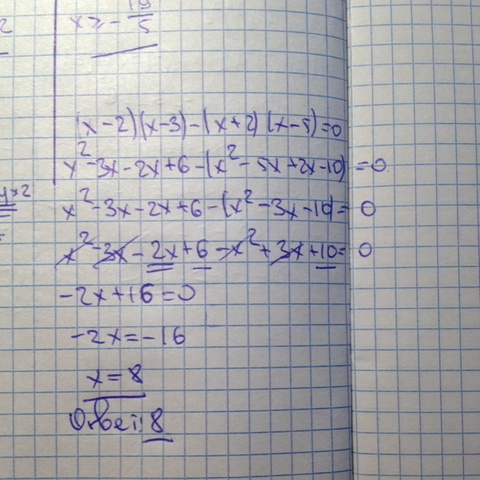 x ≥ - 19/5
(x-2)(x-3)-(x+2)(x-5)=0
x²-3x-2x+6-(x²-5x+2x-10)=0
x²-3x-2x+6-(x²-3x-10)=0
x²-3x-2x+6-x²+3x+10=0
-2x+16=0
-2x=-16
x=8
Ответ: 8